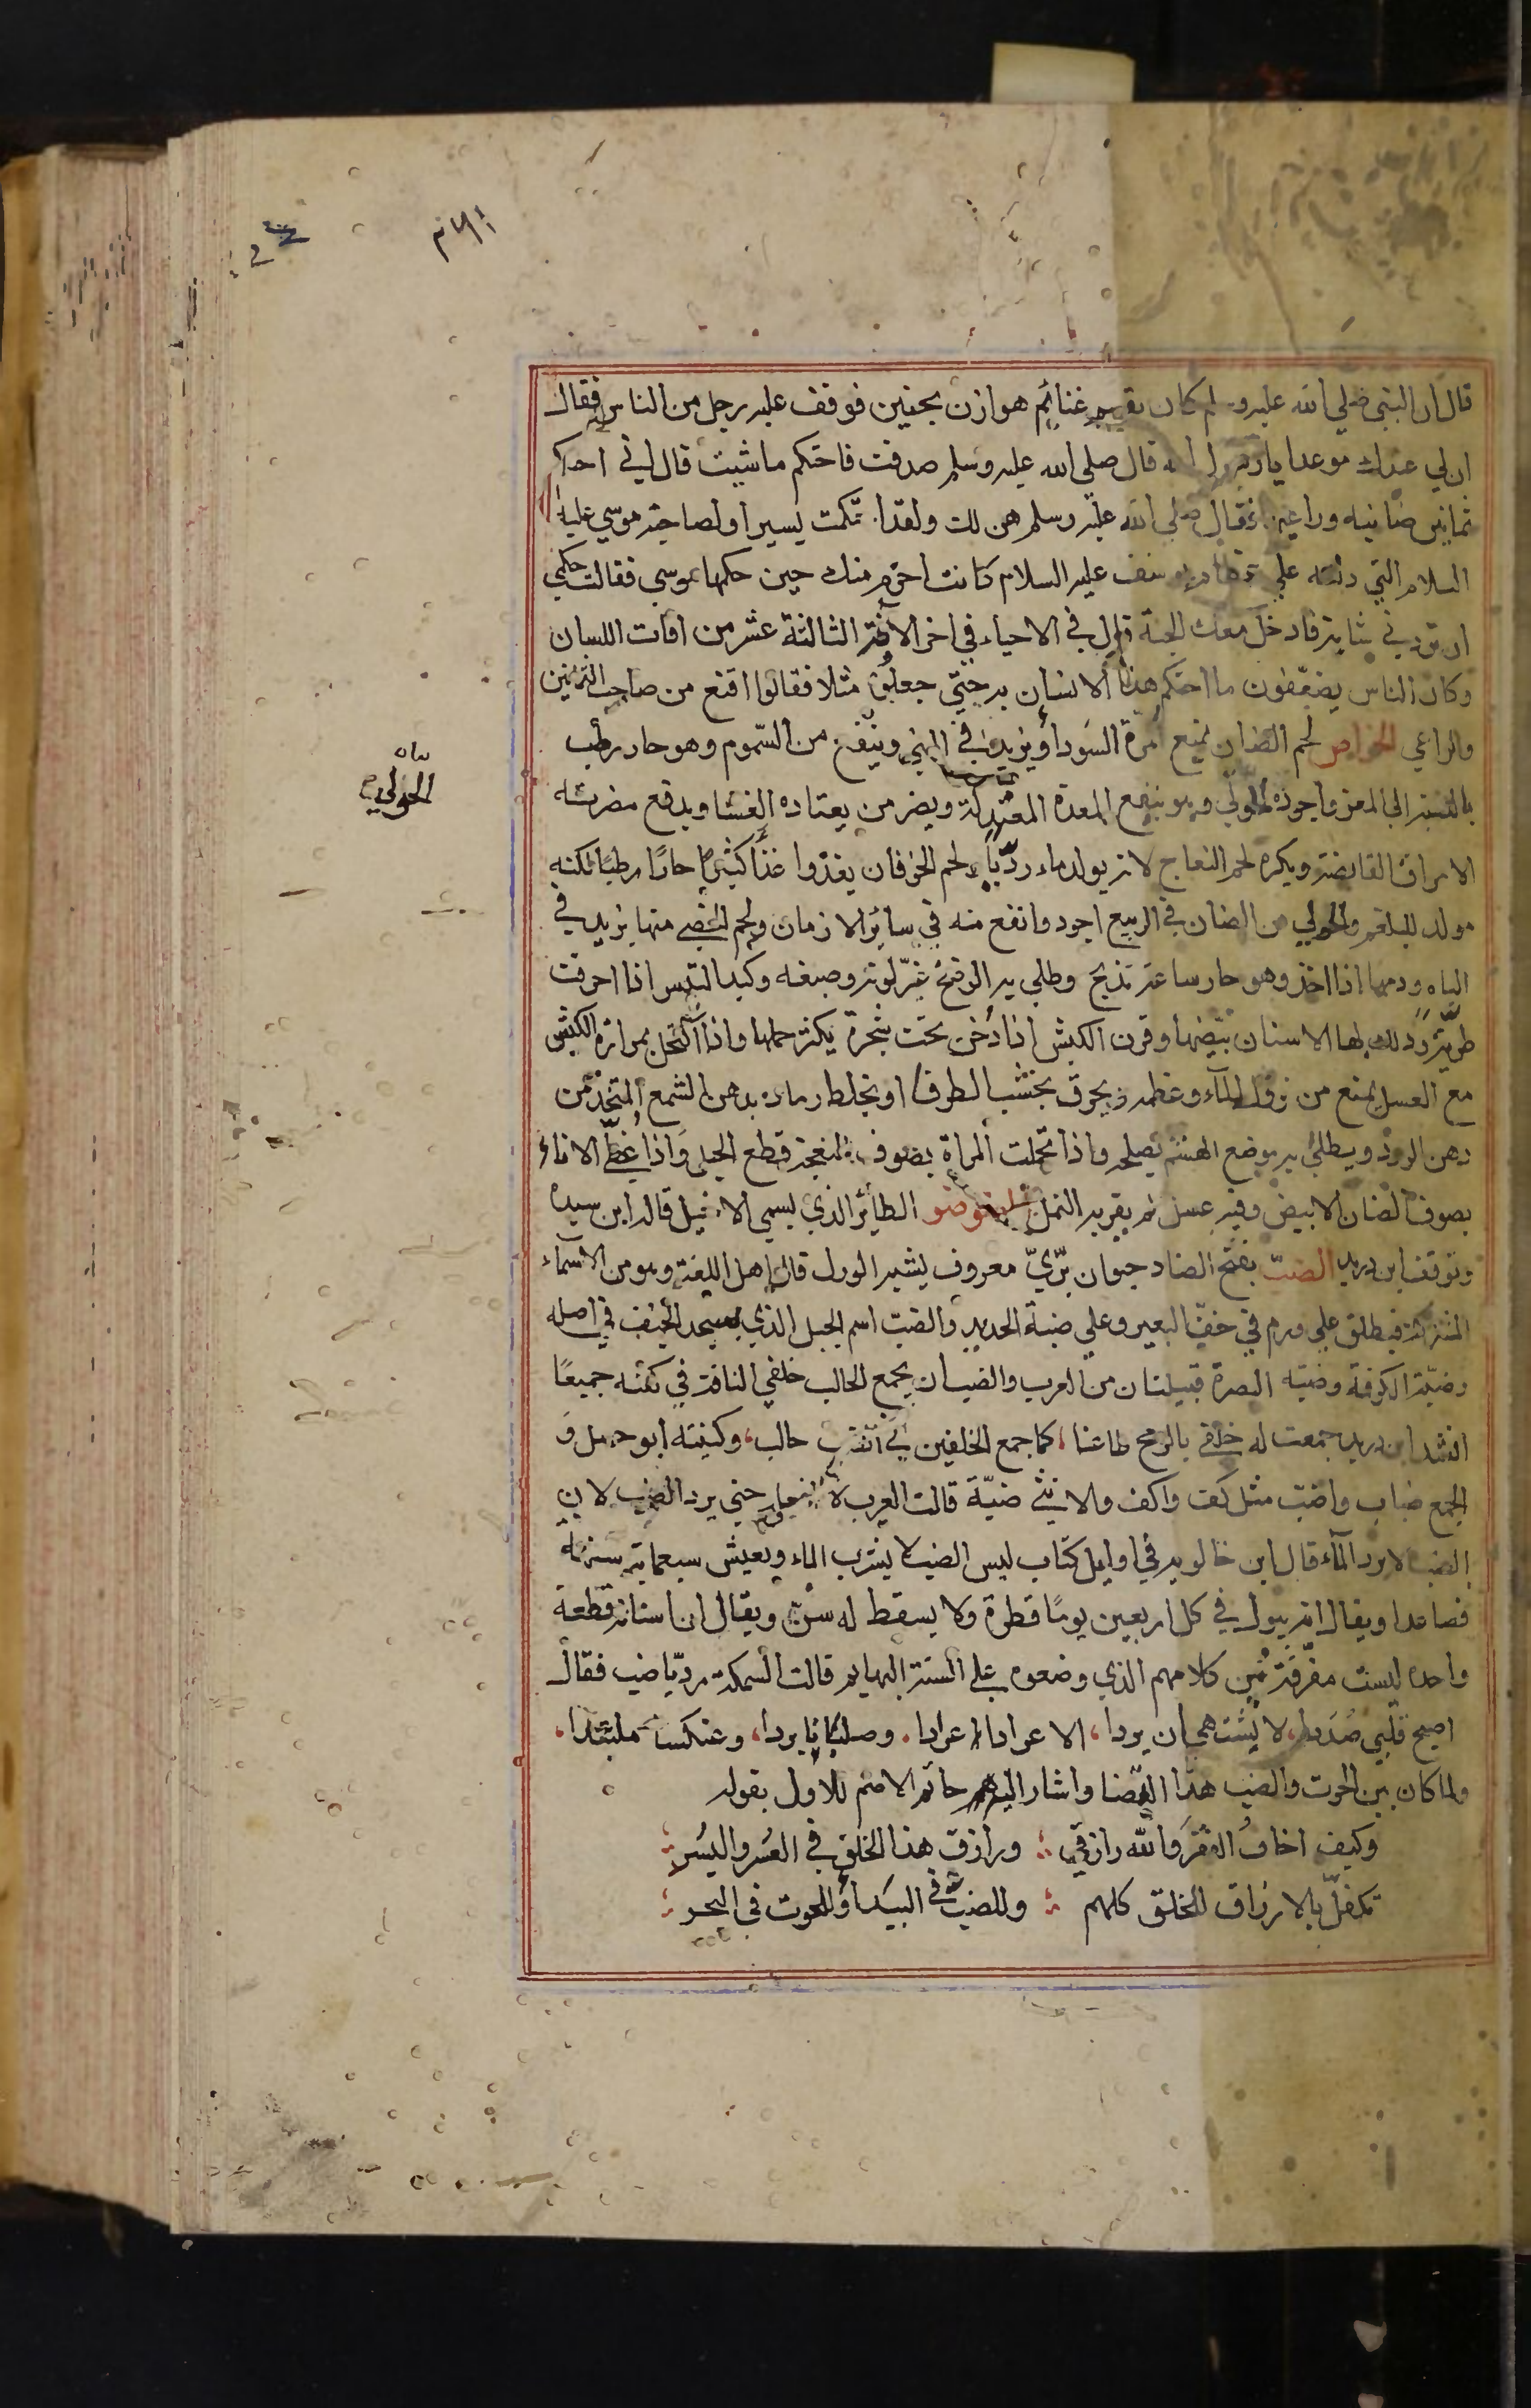 قال ان النبى صلى الله عليه وسلم كان يقسم غنائم هوازن بحنين فوقف عليه رجل من الناس فقال
ان لي عندك موعدا يا رسول الله قال صلى الله عليه وسلم صدقت فاحتكم ما شيت قال اني احتكم
ثمانين ضانيه وراعيها فقال صلى الله عليه وسلم هن لك ولقد احتكمت يسيرا ولصاحبة موسي عليه
السلام التي دلته علي عظام يوسف عليه السلام كانت احزم منك حين حكمها موسي فقالت حكمي
ان تردني شابة فادخل معك الجنة قال في الاحياء في اخر الآفة الثالثة عشر من افات اللسان
وكان الناس يضعفون ما احتكم هذا الانسان به حتي جعلوه مثلا فقالوا اقنع من صاحب الثمانين
والراعي الخواص لحم الضان يمنع المرة السودا ويزيد في المني وينفع من السموم وهو حار رطب
بالنسبة الى المعز واجوده الحولي وهو ينفع المعدة المعتدلة ويضر من يعتاده الغشا ويدفع مضرته
الامراق القابضة ويكره لحم النعاج لانه يولد ماء رديا ولحم الخرفان يغذوا غذا كثيرا حارا رطبا لكنه
مولد للبلغم والحولي من الضان في الربيع اجود وانفع منه في سائر الازمان ولحم الخصي منها يزيد في
الباه ودمها اذا اخذ وهو حار ساعة تذبح وطلي به الوضح غير لونه وصبغه وكبد التيس اذا احرقت
طرية ودلك بها الاسنان بيضها وقرن الكبش اذا دفن تحت شجرة يكثر حملها واذا اكتحل بمرارة الكبش
مع العسل يمنع من نزول الماء وعظمه يحرق بخشب الطرفا ويخلط رماده بدهن الشمع المتخذ من
دهن الورد ويطلى به موضع الهشم يصلحه واذا تحملت المراة بصوف النعجة قطع الحبل واذا غطي الاناء
بصوف الضان الابيض وفيه عسل لم يقربه النمل الضوضو الطائر الذي يسمي الاخيل قاله ابن سيده
وتوقف ابن دريد الضب بفتح الضاد حيوان بري معروف يشبه الورل قال اهل اللغة وهو من الاسماء
المشتركة فيطلق علي ورم في خف البعير وعلي ضبة الحديد والضب اسم الجبل الذي مسجد الخيف في اصله
وضبة الكوفة وضبة البصرة قبيلتان من العرب والضب ان يجمع الحالب خلفي الناقة في كفه جميعا
انشد ابن دريد جمعت له خلفي بالرمح طاعنا، كما جمع الخلفين في الضب حالب، وكنيته ابو حسل و
الجمع ضباب واضب مثل كف واكف والانثي ضبة قالت العرب لا افعله حتي يرد الضب لان
الضب لا يرد الماء قال ابن خالويه في اوايل كتاب ليس الضب لا يشرب الماء ويعيش سبعماية سنة
فصاعدا ويقال انه يبول في كل اربعين يوما قطرة ولا يسقط له سن ويقال ان اسنانه قطعة
واحدة ليست مفرقة ومن كلامهم الذي وضعوه على السنة البهايم قالت السمكة رد يا ضب فقال
اصبح قلبي صردا، لا يشتهي ان يردا، الا عرادا عردا، وصليانا بردا، وعنكسا ملتبدا.
ولما كان بين الحوت والضب هذا التضاد اشار اليه حاتم الاصم للاول بقوله
وكيف اخاف الفقر والله رازقي ؛ ورازق هذا الخلق في العسر واليسر ؛
تكفل بالارزاق للخلق كلهم ؛ وللضب في البيدا وللحوت في البحر ؛
الحولي